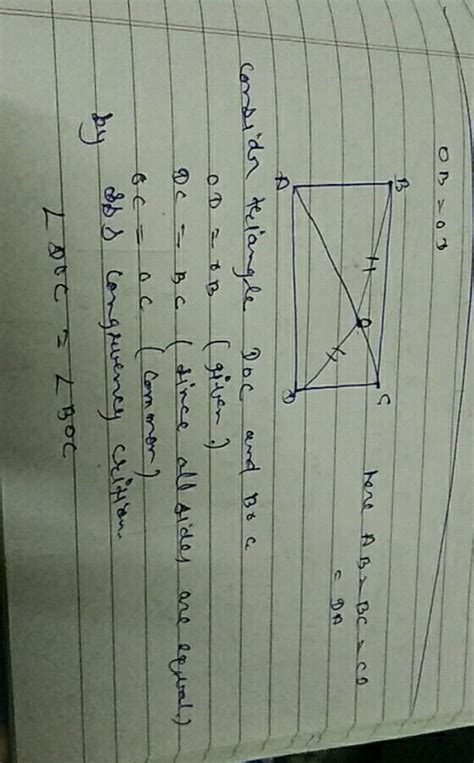 OB = OD
B
A
O
C
D
here AB = BC = CD
= DA
Consider triangle DOC and BOC
OD = OB (given)
DC = BC (since all sides are equal)
OC = OC (common)
by SSS Congruency
∠DOC = ∠BOC